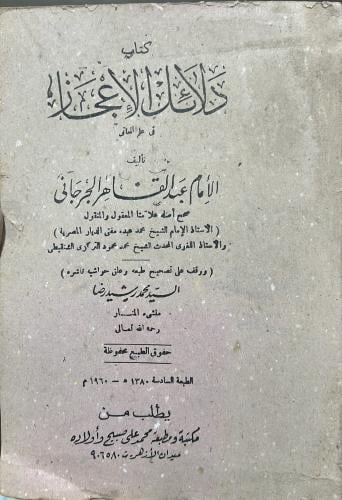 كتاب
دلائل الإعجاز
في علم المعاني
تأليف
الإمام عبد القاهر الجرجاني
صحح أصله علامتا المعقول والمنقول
( الأستاذ الإمام الشيخ محمد عبده مفتي الديار المصرية )
والأستاذ اللغوى المحدث الشيخ محمد محمود التركزى الشنقيطى
( ووقف على تصحيح طبعه وعلق حواشيه ناشره )
السيد محمد رشيد رضا
منشىء المنار
رحمه الله تعالى
حقوق الطبع محفوظة
الطبعة السادسة ١٣٨٠ هـ — ١٩٦٠ م
يطلب من
مكتبة ومطبعة محمد على صبيح وأولاده
ميدان الأزهر ت ٩٠٦٥٨٠